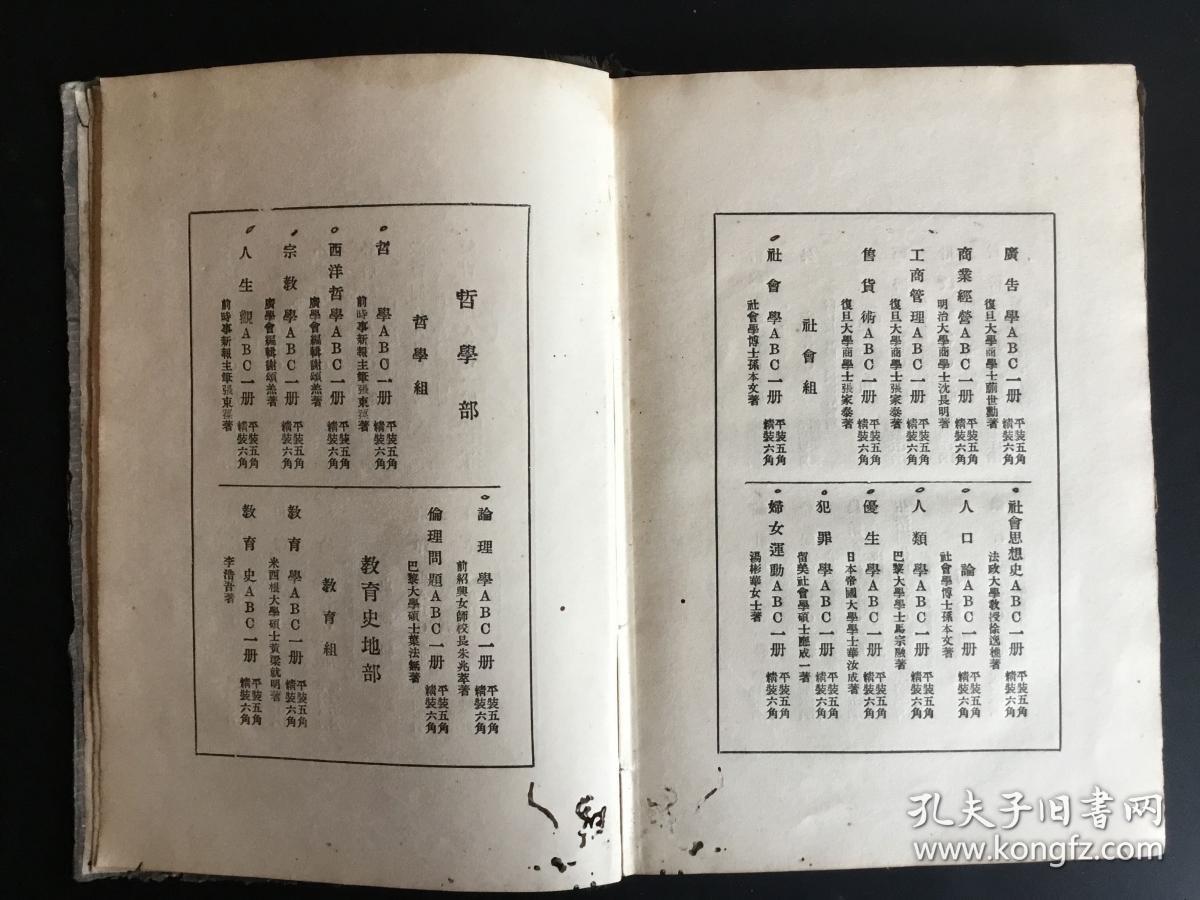 廣告學ABC一册
復旦大學商學士蒯世勳著
平裝五角
精裝六角
商業經營ABC一册
明治大學商學士沈長明著
平裝五角
精裝六角
工商管理ABC一册
復旦大學商學士張家泰著
平裝五角
精裝六角
售貨術ABC一册
復旦大學商學士張家泰著
平裝五角
精裝六角
社會組
社會學ABC一册
社會學博士孫本文著
平裝五角
精裝六角
社會思想史ABC一册
法政大學教授徐逸樵著
平裝五角
精裝六角
人口論ABC一册
社會學博士孫本文著
平裝五角
精裝六角
人類學ABC一册
巴黎大學學士馬宗融著
平裝五角
精裝六角
優生學ABC一册
日本帝國大學學士華汝成著
平裝五角
精裝六角
犯罪學ABC一册
留美社會學碩士應成一著
平裝五角
精裝六角
婦女運動ABC一册
湯彬華女士著
平裝五角
精裝六角
哲學部
哲學組
哲學ABC一册
前時事新報主筆張東蓀著
平裝五角
精裝六角
西洋哲學ABC一册
廣學會編輯謝頌羔著
平裝五角
精裝六角
宗教學ABC一册
廣學會編輯謝頌羔著
平裝五角
精裝六角
人生觀ABC一册
前時事新報主筆張東蓀著
平裝五角
精裝六角
論理學ABC一册
前紹興女師校長朱兆萃著
平裝五角
精裝六角
倫理問題ABC一册
巴黎大學碩士葉法無著
平裝五角
精裝六角
教育史地部
教育組
教育學ABC一册
米西根大學碩士黃梁就明著
平裝五角
精裝六角
教育史ABC一册
李浩吾著
平裝五角
精裝六角
孔夫子旧书网
www.kongfz.com